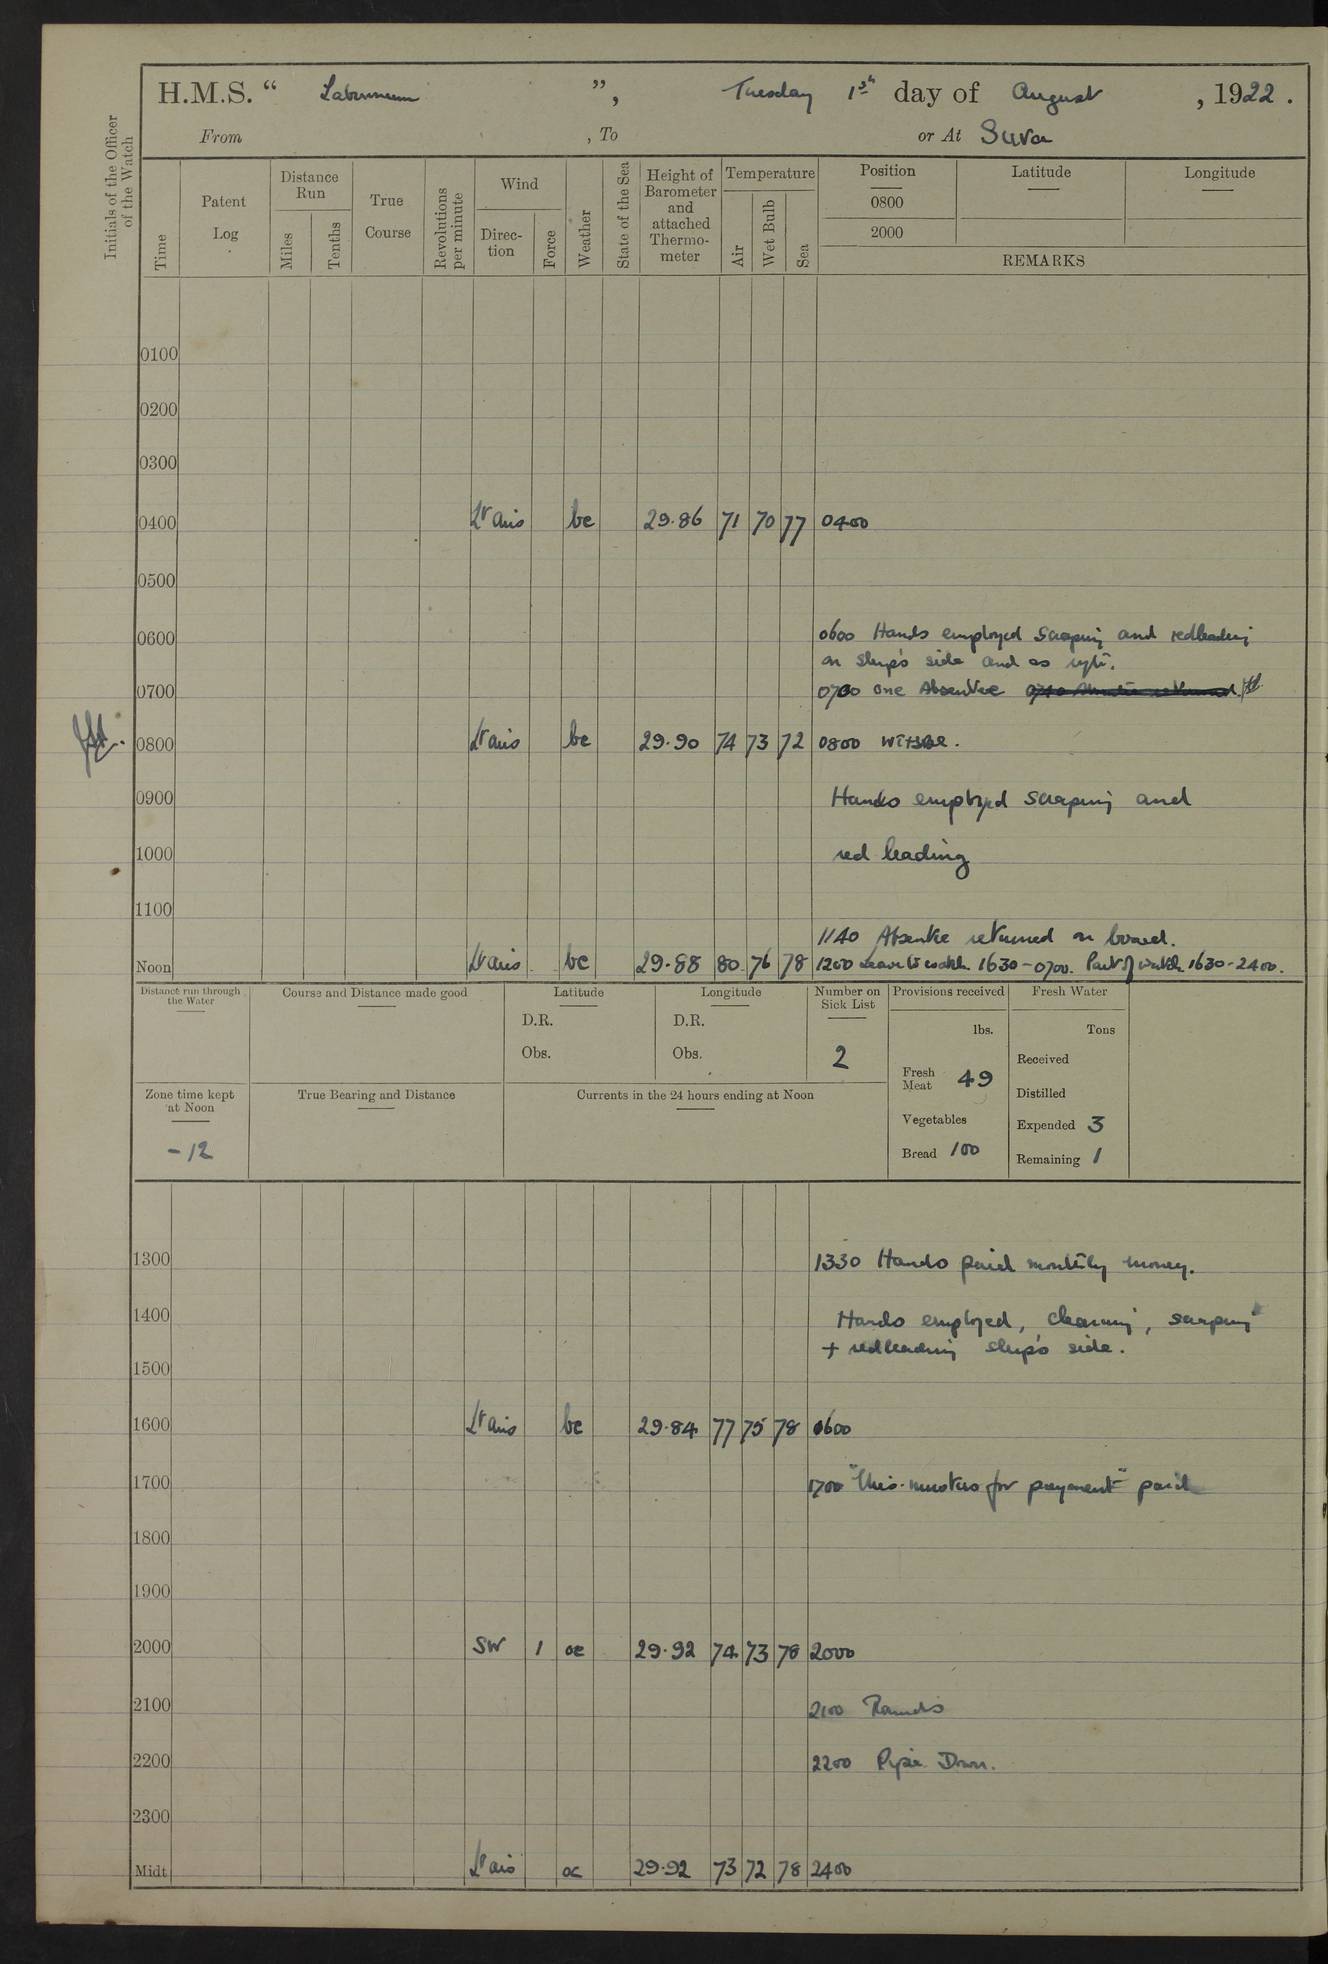 H.M.S. " Laburnum ", Tuesday 1st day of August, 1922.
From , To or At Suva
Initials of the Officer of the Watch
Time
Patent Log
Distance Run
Miles
Tenths
True Course
Revolutions per minute
Wind
Direction
Force
Weather
State of the Sea
Height of Barometer and attached Thermometer
Temperature
Air
Wet Bulb
Sea
Position
0800
2000
Latitude
Longitude
REMARKS
0100
0200
0300
0400 Lt airs bc 29.86 71 70 77 0400
0500
0600 0600 Hands employed scraping and redleading
on ship's side and as
0700 0700 one Absentee
0800 Lt airs bc 29.90 74 73 72 0800
0900 Hands employed scraping and
1000 red leading
1100
1140 Absentee returned on board.
Noon Lt airs bc 29.88 80 76 78 1200 Leave to watch 1630-0700. Part of watch 1630-2400.
Distance run through the Water
Course and Distance made good
Latitude
D.R.
Obs.
Longitude
D.R.
Obs.
Number on Sick List
2
Provisions received
lbs.
Fresh Meat 49
Vegetables
Bread 100
Fresh Water
Tons
Received
Distilled
Expended 3
Remaining 1
Zone time kept at Noon
-12
True Bearing and Distance
Currents in the 24 hours ending at Noon
1300 1330 Hands paid monthly money.
1400 Hands employed, cleaning, scraping
+ redleading ship's side.
1500
1600 Lt airs bc 29.84 77 75 78 0600
1700 1700 "musters for payment" paid
1800
1900
2000 SW 1 oc 29.92 74 73 78 2000
2100 2100 Rounds
2200 2200 Pipe Down.
2300
Midt Lt airs oc 29.92 73 72 78 2400